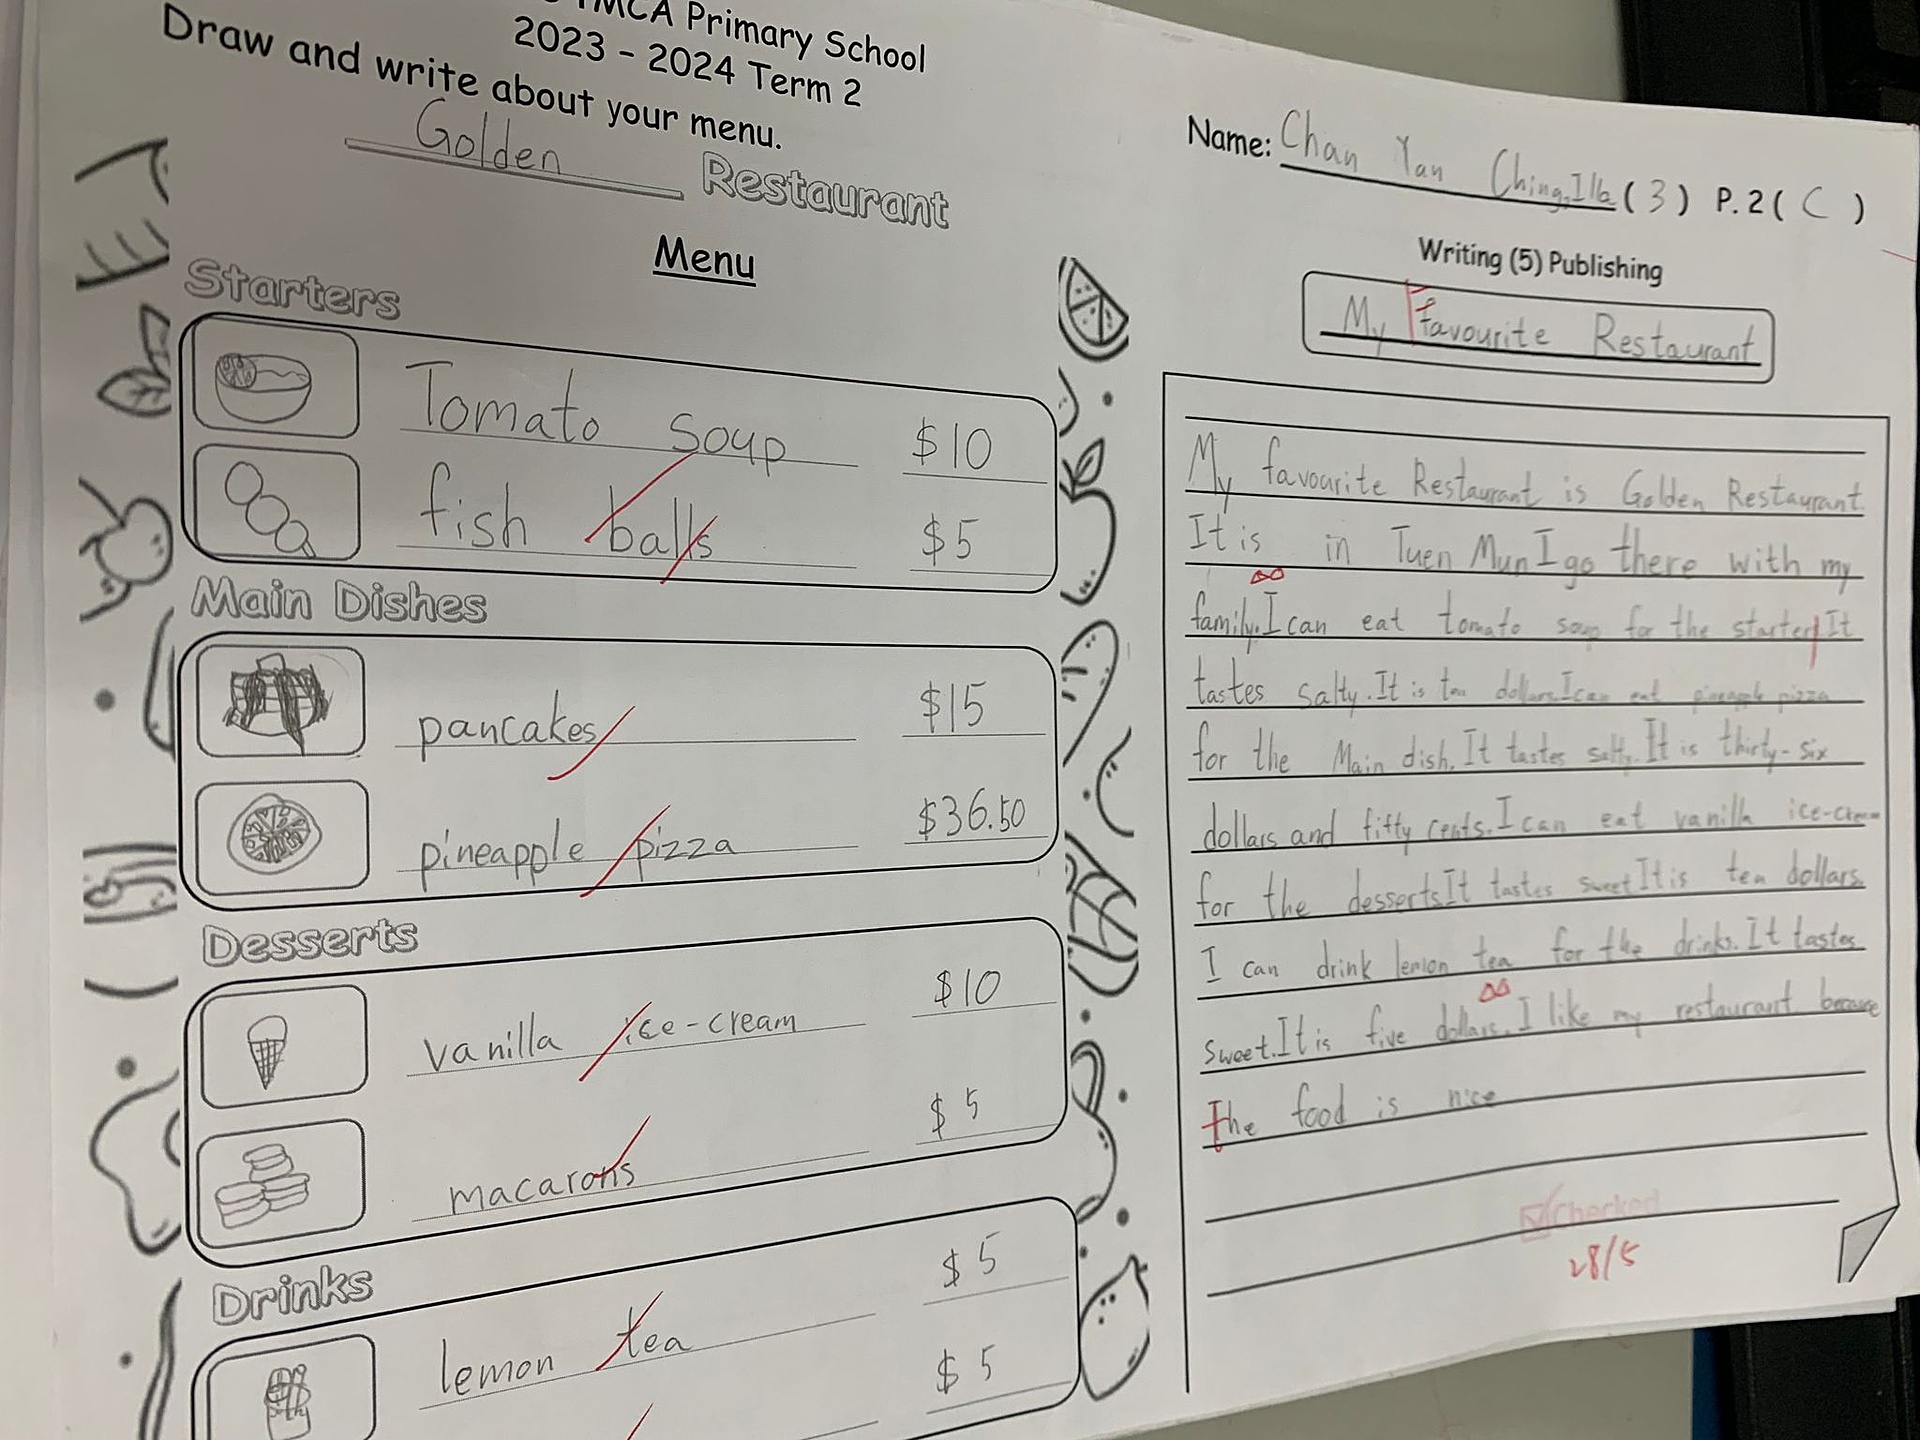 YMCA Primary School
2023 - 2024 Term 2
Draw and write about your menu.
Golden Restaurant
Menu
Starters
Tomato soup $10
fish balls $5
Main Dishes
pancakes $15
pineapple pizza $36.50
Desserts
vanilla ice-cream $10
macarons $5
Drinks
lemon tea $5
$5
Name: Chan Yan Ching,Illa (3) P.2 (C)
Writing (5) Publishing
My favourite Restaurant
My favourite Restaurant is Golden Restaurant.
It is in Tuen Mun I go there with my
family. I can eat tomato soup for the starter It
tastes salty. It is ten dollars. I can eat pineapple pizza
for the Main dish. It tastes salty. It is thirty-six
dollars and fifty cents. I can eat vanilla ice-cream
for the desserts. It tastes sweet It is ten dollars.
I can drink lemon tea for the drinks. It tastes
sweet. It is five dollars. I like my restaurant because
the food is nice
Checked
28/5